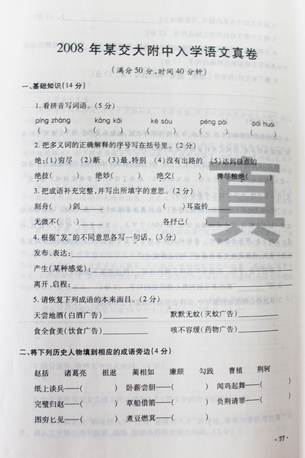 2008 年某交大附中入学语文真卷
(满分 50 分,时间 40 分钟)
一、基础知识(14 分)
1. 看拼音写词语。(5 分)
pīng zhàng kāng kǎi ké sòu péng pài pái huái
( ) ( ) ( ) ( ) ( )
2. 把多义词的正确解释的序号写在括号里。(2 分)
绝:(1)穷尽 (2)断 (3)最,特别 (4)没有出路的 (5)达到极点的
绝技( ) 绝妙( ) 绝交( ) 弹尽粮绝( )
3. 把成语补充完整,并写出所填字的意思。(2 分)
刻舟( )剑 ( )耳盗铃
无微不( ) 各抒己( )
4. 根据“发”的不同意思各写一句话。(3 分)
发布、表达:
产生(某种感觉):
离开、启程:
5. 请恢复下列成语的本来面目。(2 分)
天尝地酒(白酒广告) 默默无蚊(灭蚊广告)
食全食美(饮食广告) 咳不容缓(药物广告)
二、将下列历史人物填到相应的成语旁边(4 分)
赵括 诸葛亮 祖逖 蔺相如 廉颇 勾践 曹植 荆轲
纸上谈兵——( ) 卧薪尝胆——( ) 闻鸡起舞——( )
完璧归赵——( ) 草船借箭——( ) 负荆请罪——( )
图穷匕见——( ) 煮豆燃萁——( )
真
· 77 ·